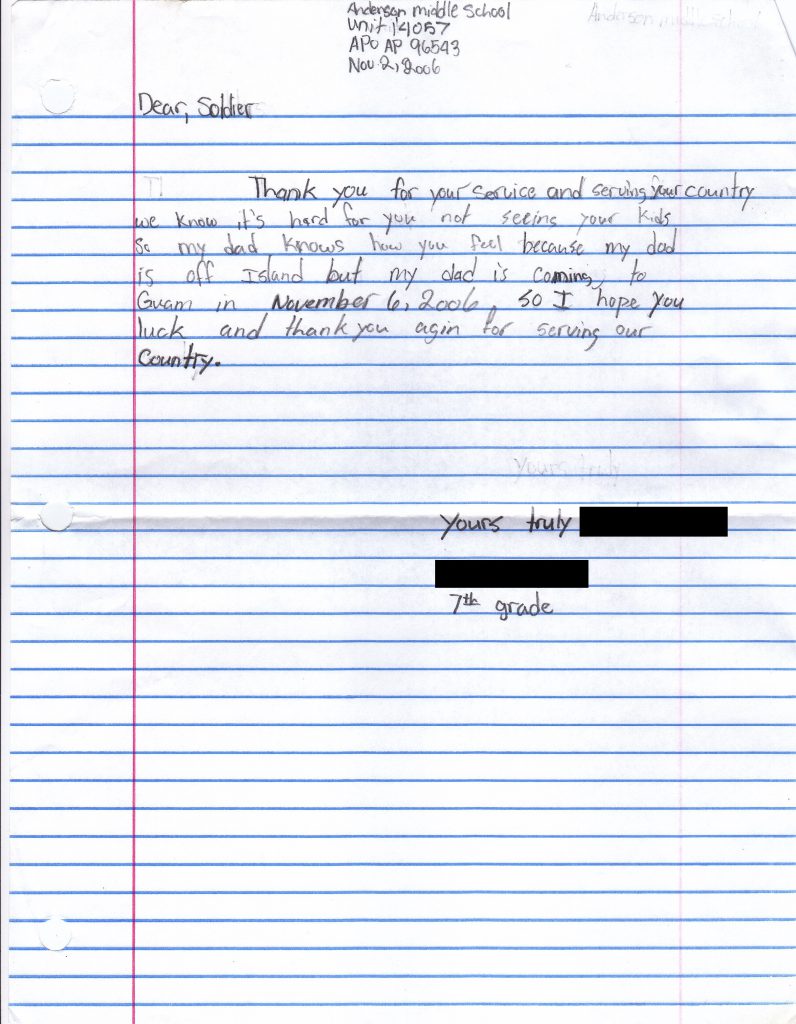 Anderson middle School
Anderson middle school
Unit 14057
APO AP 96543
Nov 2, 2006
Dear, Soldier
Thank you for your service and serving your country
we know it's hard for you not seeing your kids
So my dad knows how you feel because my dad
is off Island but my dad is coming to
Guam in November 6, 2006, so I hope you
luck and thank you agin for serving our
Country.
Yours truly
Yours truly
7th grade